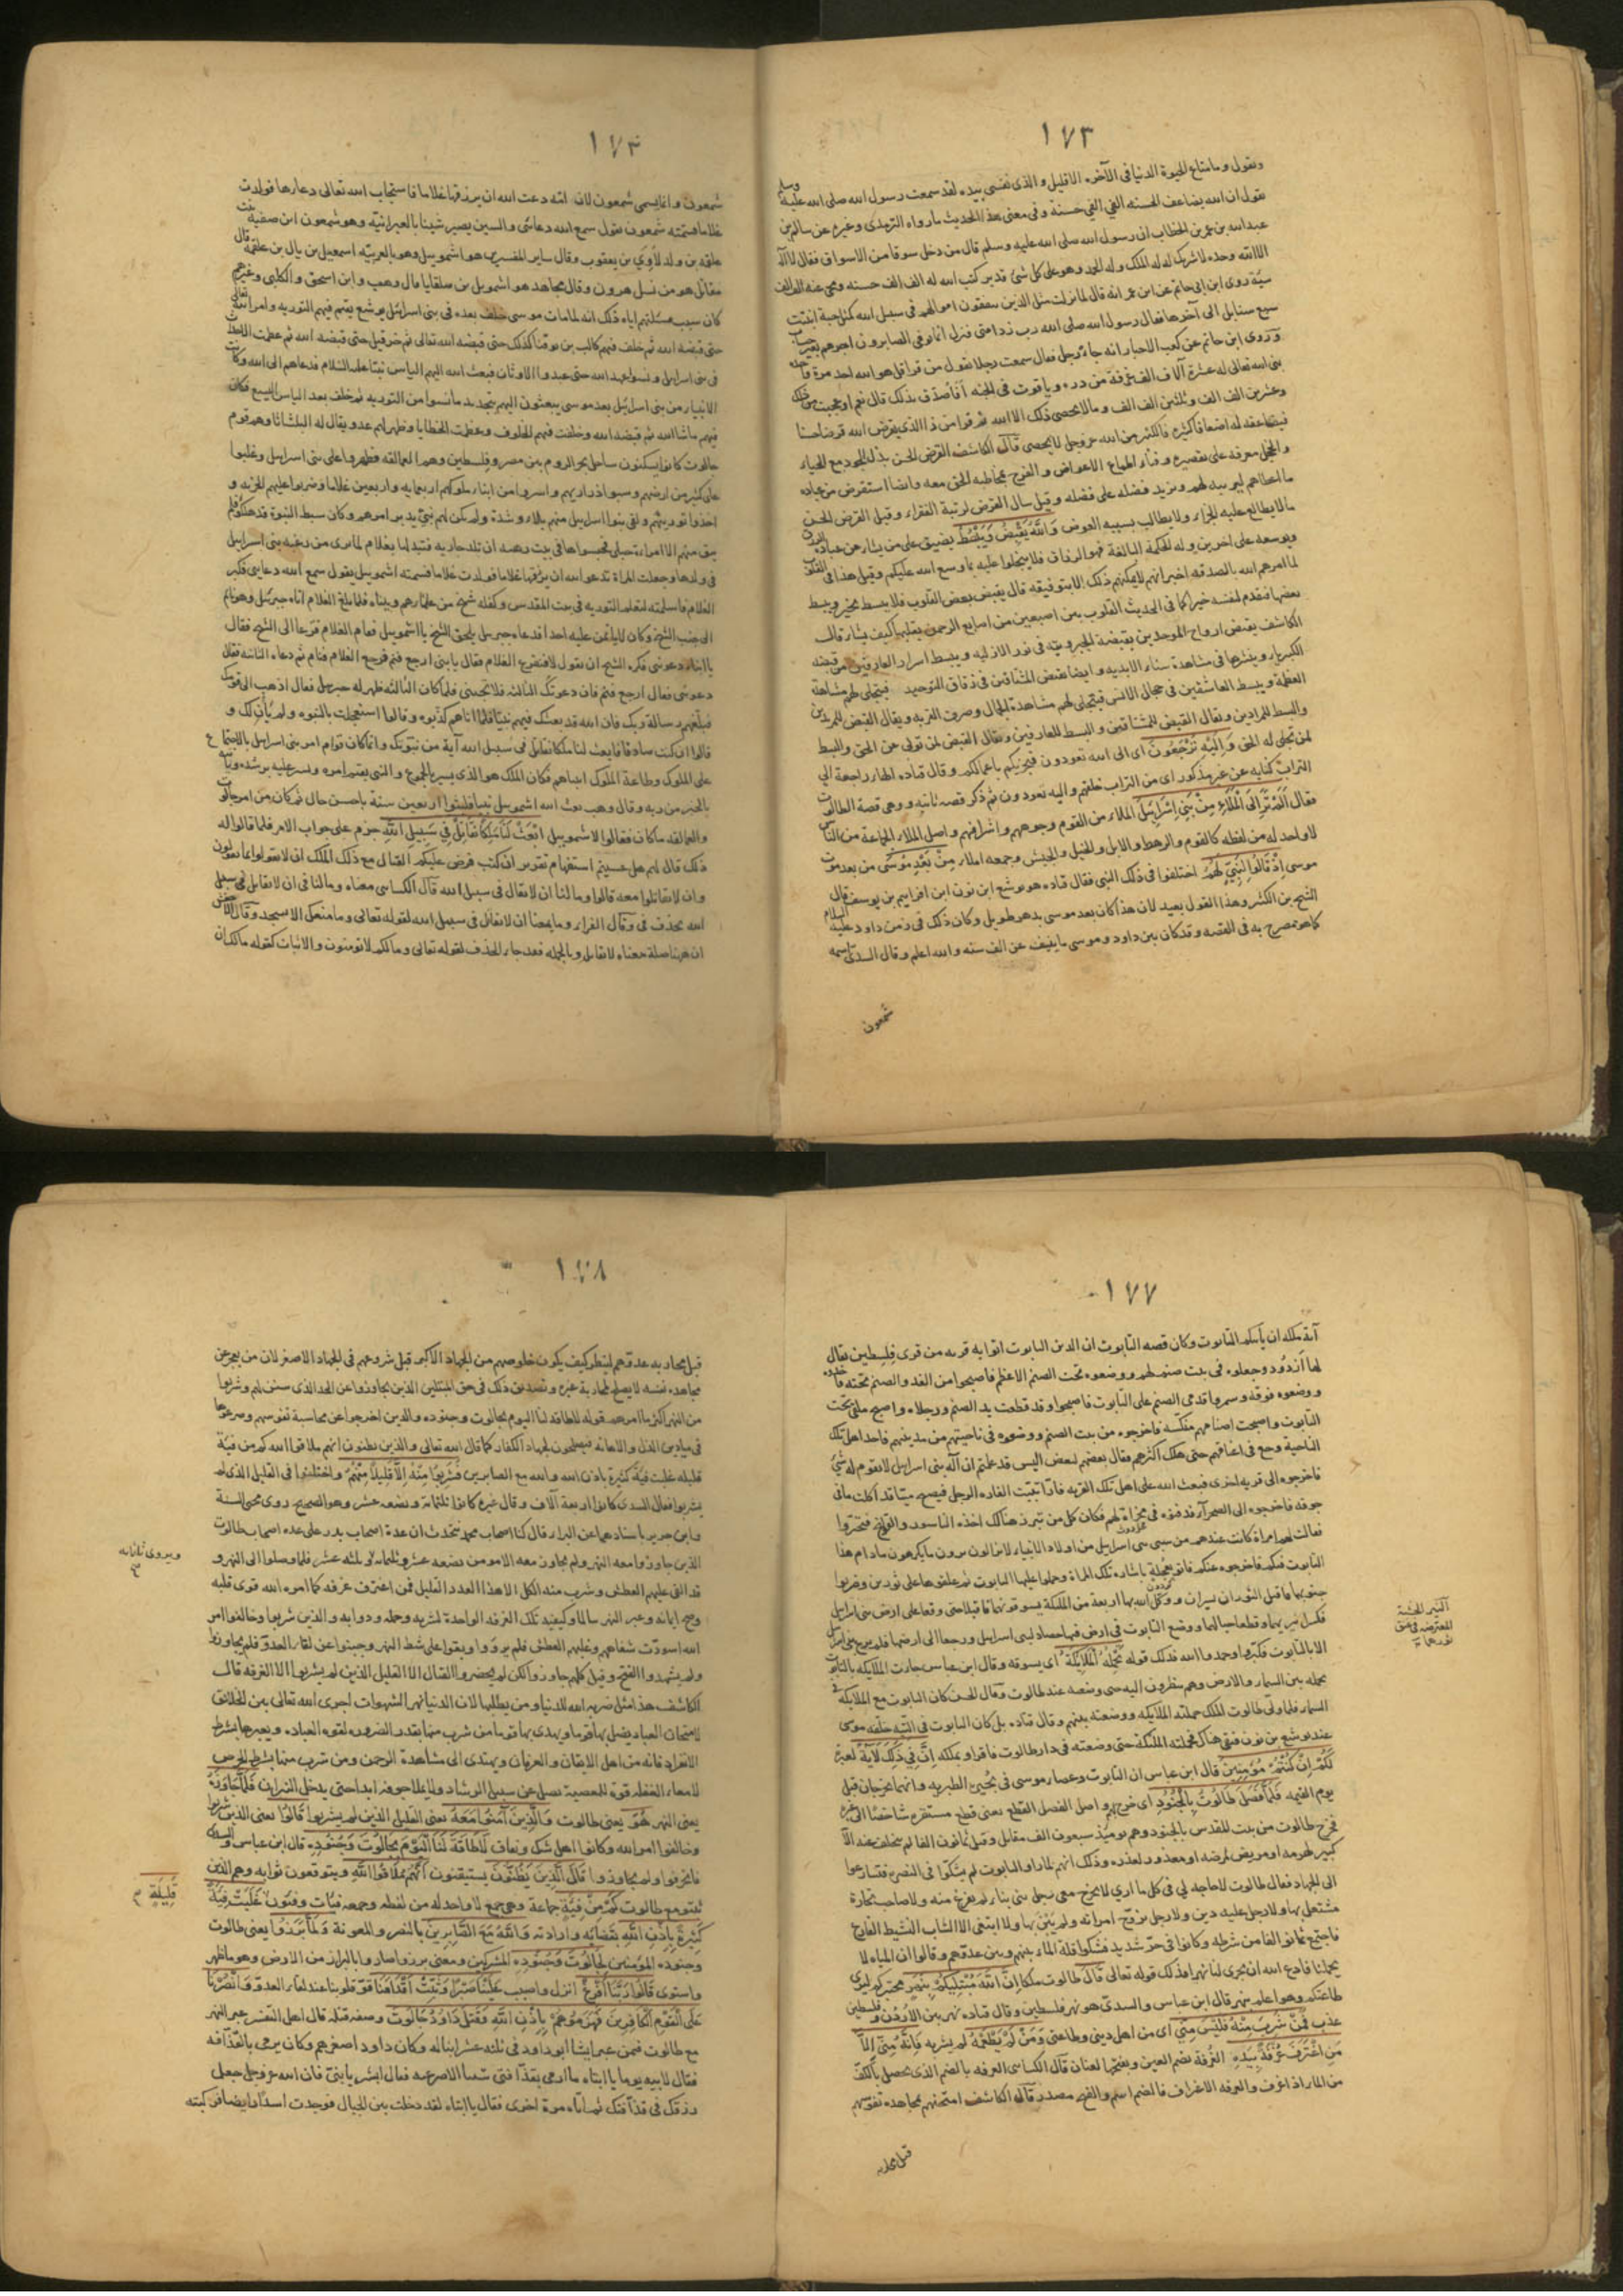 ١٧٣
ونقول وما متاع الحيوة الدنيا فى الآخرة الا قليل والذى نفسى بيده لقد سمعت رسول الله صلى الله عليه وسلم
يقول ان الله يضاعف الحسنة الفى الفى حسنة وفى معنى هذا الحديث ما رواه الترمذى وغيره عن سالم بن
عبد الله بن عمر بن الخطاب ان رسول الله صلى الله عليه وسلم قال من دخل سوقا من الاسواق فقال لا اله
الا الله وحده لا شريك له له الملك وله الحمد وهو على كل شئ قدير كتب الله له الف الف حسنه ومحى عنه الف الف
سيّة روى ابن ابى حاتم عن ابن عمر انه قال لما نزلت مثل الذين ينفقون اموالهم فى سبيل الله كمثل حبة انبتت
سبع سنابل الى آخرها فقال رسول الله صلى الله رب زد امتى فنزل انما يوفى الصابرون اجرهم بغير حساب
وروى ابن حاتم عن كعب الاحبار انه جاءه رجل فقال سمعت رجلا يقول من قرا قل هو الله احد مرة واحدة
بنى الله تعالى له عشرة آلاف الف غرفة من دره وياقوت فى الجنه أفأصدق بذلك قال نعم او عجبت من ذلك
وعشرين الف الف وثلثين الف الف وما لا يحصى ذلك الا الله ثم قرا من ذا الذى يقرض الله قرضا حسنا
فيضاعفه له اضعافا كثيرة فالكثير من الله عز وجل لا يحصى قال الكاشف القرض الحسن بذل الوجود مع الحياء
والخجل معرفه على تقصيره
ما اعطاهم ليربيه لهم ويزيد فضله على فضله وقيل سال القرض لرتبة الفقراء وقيل القرض الحسن
ما لا يطالع عليه الجزاء ولا يطالب بسببه العوض وَاللَّهُ يَقْبِضُ وَيَبْسُطُ يضيق على من يشاء من عباده
ويوسعه على اخرين وله الحكمة البالغة فهو الرزاق فلا يبخلوا عليه بما وسع الله عليكم وقيل هذا فى القلوب
لما امرهم الله بالصدقه اخبر انهم لا يمكنهم ذلك الا بتوفيقه قال يقبض بعض القلوب فلا يبسط بخير ويبسط
بعضها فيقدم لنفسه خيرا كما فى الحديث القلوب بين اصبعين من اصابع الرحمن يقلبها كيف يشاء قال
الكاشف يقبض ارواح الموحدين بقبضة الجبروتية فى نور الازليه ويبسط اسرار العارفين من قبضه
الكبرياء وينشرها فى مشاهدة سناء الابديه وايضا يقبض المشتاقين فى
العظمة ويبسط العاشقين فى حجال الانس فيتجلى لهم مشاهدة الجمال وصرف القربه ويقال القبض للمريدين
والبسط للمرادين ويقال القبض للمشتاقين والبسط للعارفين ويقال القبض لمن تولى عن الحق والبسط
لمن تجلى له الحق وَإِلَيْهِ تُرْجَعُونَ اى الى الله تعودون فيجزيكم باعمالكم وقال قتادة الهاء راجعة الى
التراب كناية عن غير مذكور اى من التراب خلقهم واليه تعودون ثم ذكر قصه ثانيه وهى قصة الطالوت
فقال أَلَمْ تَرَ إِلَى الْمَلَإِ مِنْ بَنِي إِسْرَائِيلَ الملاء من القوم وجوههم واشرافهم واصل الملاء الجماعة من الناس
لا واحد له من لفظه كالقوم والرهط والابل والخيل والجيش وجمعه املاء مِنْ بَعْدِ مُوسَى من بعد موت
موسى إِذْ قَالُوا لِنَبِيٍّ لَهُمُ اختلفوا فى ذلك النبى فقال قتاده هو يوشع ابن نون ابن افرايم بن يوسف قال
الشيخ بن الكثير وهذا القول بعيد لان هذا كان بعد موسى بدهر طويل وكان ذلك فى زمن داود عليه السلام
كما هو مصرح به فى القصه وقد كان بين داود وموسى ما ينيف عن الف سنه والله اعلم وقال السدىّ اسمه
شمعون
١٧٤
شمعون وانما سمى شمعون لان امّه دعت الله ان يرزقها غلاما فاستجاب الله تعالى دعاءها فولدت
غلاما فسمته شمعون تقول سمع الله دعائى والسين يصير شينا بالعبرانية وهو شمعون ابن صفية
علقه بن ولد لاوى بن يعقوب وقال ساير المفسرين هو اشمويل وهو بالعربيّه اسمعيل بن يال بن علقمه قال
مقاتل هو من نسل هرون وقال مجاهد هو اشمويل بن هلقايا قال وهب وابن اسحق والكلبى وغيرهم
كان سبب مسئلتهم اياه ذلك انه لما مات موسى خلف بعده فى بنى اسرائيل يوشع يقيم فيهم التوريه وامر الله تعالى
حتى قبضه الله ثم خلف فيهم كالب بن يوقنا كذلك حتى قبضه الله تعالى ثم حزقيل حتى قبضه الله ثم عظمت الاحداث
فى بنى اسرايل ونسوا عهد الله حتى عبدوا الاوثان فبعث الله اليهم الياس نبيّا عليه السلام فدعاهم الى الله وكانت
الانبياء من بنى اسرائيل بعد موسى يبعثون اليهم بتجديد ما نسوا من التوريه ثم خلف بعد الياس اليسع فكان
فيهم ماشاالله ثم قبضه الله وخلفت فيهم الخلوف وعظمت الخطايا وظهر لهم عدو يقال له البلشاثا وهم قوم
جالوت كانوا يسكنون ساحل بحر الروم بين مصر وفلسطين وهم العمالقه فظهروا على بنى اسرايل وغلبوا
على كثير من ارضهم وسبوا ذراريهم واسروا من ابناء ملوكهم اربعمايه واربعين غلاما وضربوا عليهم الجزيه و
اخذوا توريتهم ولقى بنوا اسرايل منهم بلاء وشدة ولم يكن لهم نبىّ يدبر امرهم وكان سبط النبوة قد هلكوا فلم
يبق منهم الا امراة حبلى فحبسوها فى بيت رهبه ان تلد جاريه فتبدلها بغلام لما يرى من رغبه بنى اسرايل
فى ولدها وجعلت المراة تدعو الله ان يرزقها غلاما فولدت غلاما فسمته اشمويل يقول سمع الله دعايى فكبر
الغلام فاسلمته لتعلم التوريه فى بيت المقدس وكفله شيخ من علمائهم وتبناه فلما بلغ الغلام اتاه جبرئيل وهو نائم
الى جنب الشيخ وكان لا ياتمن عليه احدا فدعاه جبريل بلحن الشيخ يا اشمويل فقام الغلام فزعا الى الشيخ فقال
يا ابتاه دعوتنى فكره الشيخ ان يقول لا فيفزع الغلام فقال يا بنى ارجع فنم فرجع الغلام فنام ثم دعاه الثانيه فقال
دعوتنى فقال ارجع فنم فان دعوتك الثالثه فلا تجبنى فلما كان الثالثه ظهر له جبريل فقال اذهب الى قومك
فبلغهم رسالة ربك فان الله قد بعثك فيهم نبيّا فلما اتاهم كذبوه وقالوا استعجلت بالنبوه ولم يأن لك و
قالوا ان كنت صادقا فابعث لنا ملكا نقاتل فى سبيل الله آية من نبوّتك وانما كان قوام امر بنى اسرايل بالاجتماع
على الملوك وطاعة الملوك انبياهم فكان الملك هو الذى يسير بالجموع والنبى يقيم امره ويسر عليه برشده وياتيه
بالخبر من ربه وقال وهب بعث الله اشمويل نبيا فلبثوا اربعين سنة باحسن حال ثم كان من امر جالوت
والعمالقه ما كان فقالوا لاشمويل ابْعَثْ لَنَا مَلِكًا نُقَاتِلْ فِي سَبِيلِ اللَّهِ جزم على جواب الامر فلما قالوا له
ذلك قال لهم هل عسيتم استفهام تقرير ان كتب فرض عليكم القتال مع ذلك الملك ان لا تقولوا بما تقولون
وان لا تقاتلوا معه قالوا وما لنا ان لا نقاتل فى سبيل الله قال الكسائى معناه وما لنا فى ان لا نقاتل فى سبيل
الله بحذف فى وقال الفراء وما يمنعنا ان لا نقاتل فى سبيل الله لقوله تعالى وما منعك الا تسجد وقال الاخفش
ان ههنا صلة معناه لا نقاتل وبالجمله فقد جاء الحذف لقوله تعالى وما لكم لا تؤمنون والاثبات كقوله مالك ان
١٧٧
آية ملكه ان ياتيكم التابوت وكان قصه التابوت ان الذين التابوت اتوا به قريه من قرى فلسطين يقال
لها ازدود وجعلوه فى بيت صنم لهم ووضعوه تحت الصنم الاعظم فاصبحوا من الغد والصنم تحته فاخذوه
ووضعوه فوقه وسمروا قدمى الصنم على التابوت فاصبحوا وقد قطعت يد الصنم ورجلاه واصبح ملقى تحت
التابوت واصبحت اصنامهم منكسه فاخرجوه من بيت الصنم ووضعوه فى ناحيتهم من مدينهم فاخذ اهل تلك
الناحية وجع فى اعناقهم حتى هلك اكثرهم فقال بعضهم لبعض اليس قد علمتم ان آله بنى اسرايل لا يقوم له شئ
فاخرجوه الى قريه اخرى فبعث الله على اهل تلك القريه فأرا تبيّت الفاره الرجل فيصبح ميتا قد اكلت ما فى
جوفه فاخرجوه الى الصحراء فدفنوه فى مخراة لهم فكان كل من تبرز هنالك اخذه الناسور والقولنج فتحيّروا
فقالت لهم امراة كانت عندهم من سبى بنى اسرايل من اولاد الانبياء لا تزالون ترون ما تكرهون مادام هذا
التابوت فيكم فاخرجوه عنكم فاتوا بعجلة باشاره تلك المراة وحملوا عليها التابوت ثم علقوها على ثورين وضربوا
جنوبهما فاقبل الثوران يسيران ووكل الله بها اربعة من الملئكة يسوقونهما فاقبلا حتى وقفا على ارض بنى اسرايل
فكسرا نيريهما وقطعا حبالهما ووضع التابوت فى ارض فيها حصاد لبنى اسرايل ورجعا الى ارضها فلم يرع بنى اسرايل
الا بالتابوت فكبّروا وحمدوا الله فذلك قوله تَحْمِلُهُ الْمَلَائِكَةُ اى يسوقه وقال ابن عباس جاءت الملايكه بالتابوت
تحمله بين السماء والارض وهم ينظرون اليه حتى وضعه عند طالوت وقال الحسن كان التابوت مع الملايكة فى
السماء فلما ولى طالوت الملك حملته الملايكه ووضعته بينهم وقال قتاده بل كان التابوت فى التيه خلفه موسى
عند يوشع بن نون فبقى هناك فحملته الملئكة حتى وضعته فى دار طالوت فاقروا بملكه إِنَّ فِي ذَلِكَ لَآيَةً لعبرة
لَكُمْ إِنْ كُنْتُمْ مُؤْمِنِينَ قال ابن عباس ان التابوت وعصاء موسى فى بحيرة الطبريه وانهما يخرجان قبل
يوم القيمه فَلَمَّا فَصَلَ طَالُوتُ بِالْجُنُودِ اى خرج بهم واصل الفصل القطع يعنى قطع مستقره شاخصا الى غيره
فخرج طالوت من بيت المقدس بالجنود وهم يوميذ سبعون الف مقاتل وقيل ثمانون الفا لم يتخلف عنه الا
كبير لهرمه او مريض لمرضه او معذور لعذره وذلك انهم لما راوا التابوت لم يشكوا فى النصر فتسارعوا
الى الجهاد فقال طالوت لا حاجه لى فى كل ما ارى لا يخرج معى رجل بنى بناء لم يفرغ منه ولا صاحب تجارة
مشتغل بها ولا رجل عليه دين ولا رجل تزوج امراة ولم يبن بها ولا ابتغى الا الشاب النشيط الفارغ
فاجتمع ثمانون الفا من شرطه وكانوا فى حرّ شديد فشكوا قلة الماء بينهم وبين عدوهم وقالوا ان المياه لا
تحملنا فادع الله ان يجرى لنا نهرا فذلك قوله تعالى قَالَ طالوت ملكا إِنَّ اللَّهَ مُبْتَلِيكُمْ بِنَهَرٍ مختبركم ليرى
طاعتكم وهو اعلم بنهر قال ابن عباس والسدىّ هو نهر فلسطين وقال قتاده نهر بين الاردن وفلسطين
عذب فَمَنْ شَرِبَ مِنْهُ فَلَيْسَ مِنِّي اى من اهل دينى وطاعتى وَمَنْ لَمْ يَطْعَمْهُ لم يشربه فَإِنَّهُ مِنِّي إِلَّا
مَنِ اغْتَرَفَ غُرْفَةً بِيَدِهِ الغرفة بضم العين وبفتحها لغتان قال الكسائى الغرفه بالضم الذى يحصل بالكف
من الماء اذا غرف والغرفه الاغراف فالضم اسم والفتح مصدر قال الكاشف امتحنهم بمجاهدة نفوسهم
قبل محاربه
النير الخشبة
المعترضة فى عنق
ثورهما
١٧٨
قبل محاربه عدوهم لينظر كيف يكون خلوصهم من الجهاد الاكبر قبل شروعهم فى الجهاد الاصغر لان من يعجز عن
مجاهده نفسه لا يصلح لمحاربة غيره وتصديق ذلك فى حق المبتلين الذين يجاوزوا عن الحد الذى سنن لهم وشربوا
من النهر اكثر ما امرهم قوله لا طاقة لنا اليوم بجالوت وجنوده والذين اخرجوا عن محاسبة نفوسهم وصرعوها
فى ميادين الذل والاهانه فيصلحون لجهاد الكفار كما قال الله تعالى والذين يظنون انهم ملاقوا الله كم من فئة
قليله غلبت فئة كثيرة باذن الله والله مع الصابرين فَشَرِبُوا مِنْهُ إِلَّا قَلِيلًا مِنْهُمْ واختلفوا فى القليل الذى لم
يشربوا فقال السدى كانوا اربعة آلاف وقال غيره كانوا ثلثمائة وبضعه عشر وهو الصحيح روى محى السنة
وابن جرير باسنادهما عن البراء قال كنا اصحاب محمد نتحدث ان عدة اصحاب بدر على عده اصحاب طالوت
الذين جاوزوا معه النهر ولم يجاوز معه الا مومن بضعه عشر وثلثمايه
قد القى عليهم العطش وشرب منه الكل الا هذا العدد القليل فمن اغترف غرفه كما امره الله قوى قلبه
وصح ايمانه وعبر النهر سالما وكفيته تلك الغرفه الواحدة لشربه وحمله ودوابه والذين شربوا وخالفوا امر
الله اسودّت شفاههم وغلبهم العطش فلم يردّوا وبقوا على شط النهر وجبنوا عن لقاء العدوّ فلم يجاوزا
ولم يشهدوا الفتح وقيل كلهم جاوزوا لكن لم يحضروا القتال الا القليل الذين لم يشربوا الا الغرفه قال
الكاشف هذا مثل ضربه الله للدنيا ومن يطلبها لان الدنيا نهر الشهوات اجرى الله تعالى بين الخلائق
لامتحان العباد يضل بها قوما ويهدى بها قوما من شرب منها بقدر الضروره لقوه العباده ويعبرها بشرط
الانفراد فانه من اهل الايقان والعرفان ويهتدى الى مشاهدة الرحمن ومن شرب منها بشرط الحرص
لامعاء الغفله قوة للمعصيه يضل عن سبيل الرشاد ولا يفلح جوهره ابدا حتى يدخل النيران فَلَمَّا جَاوَزَهُ
يعنى النهر هُوَ يعنى طالوت وَالَّذِينَ آمَنُوا مَعَهُ يعنى القليل الذين لم يشربوا قَالُوا يعنى الذين شربوا
وخالفوا امر الله وكانوا اهل شك ونفاق لَا طَاقَةَ لَنَا الْيَوْمَ بِجَالُوتَ وَجُنُودِهِ قال ابن عباس والسدى
فانحرفوا ولم يجاوزوا قَالَ الَّذِينَ يَظُنُّونَ يستيقنون أَنَّهُمْ مُلَاقُوا اللَّهِ ويتوقعون ثوابه وهم الذين
ثبتو مع طالوت كَمْ مِنْ فِئَةٍ جماعة وهى جمع لا واحد له من لفظه وجمعه فئات وفئون غَلَبَتْ فِئَةً
كَثِيرَةً بِإِذْنِ اللَّهِ بقضائه وارادته وَاللَّهُ مَعَ الصَّابِرِينَ بالنصر والمعونة وَلَمَّا بَرَزُوا يعنى طالوت
وجنوده المؤمنين لِجَالُوتَ وَجُنُودِهِ المشركين ومعنى برزوا صاروا بالبراز من الارض وهو ما ظهر
واستوى قَالُوا رَبَّنَا أَفْرِغْ انزل واصبب عَلَيْنَا صَبْرًا وَثَبِّتْ أَقْدَامَنَا قوّ قلوبنا عند لقاء العدوّ وَانْصُرْنَا
عَلَى الْقَوْمِ الْكَافِرِينَ فَهَزَمُوهُمْ بِإِذْنِ اللَّهِ وَقَتَلَ دَاوُدُ جَالُوتَ وصفه قتله قال اهل التفسير عبر النهر
مع طالوت فيمن عبر ايشا ابو داود فى ثلثه عشر ابنا له وكان داود اصغرهم وكان يرمى بالقذافه
فقال لابيه يوما يا ابتاه ما ارمى بقذافتى شيا الا صرعته فقال ابشر يا بنىّ فان الله عز وجل جعل
رزقك فى قذافتك ثم اتاه مرة اخرى فقال يا ابتاه لقد دخلت بين الجبال فوجدت اسدا رابضا فركبته
ويروى ثلثمايه
قَلِيلَةٍ